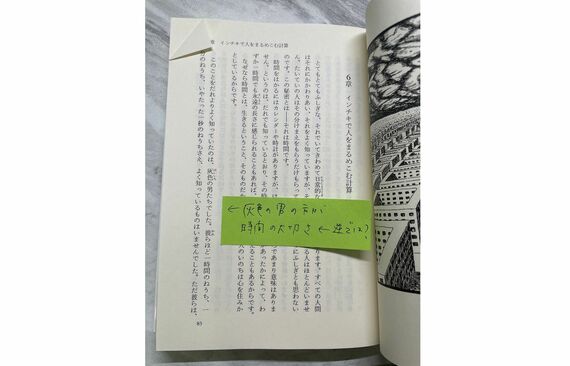 章 インチキで人をまるめこむ計算
6章 インチキで人をまるめこむ計算
とてもとてもふしぎな、それでいてきわめて日常的な
はそれにかかわりあい、それをよく知っていますが、そ
ん。たいていの人はその分けまえをもらうだけもらって
のです。この秘密とは――それは時間です。
時間をはかるにはカレンダーや時計がありますが、は
せん。というのは、だれでも知っているとおり、その
ずか一時間でも永遠の長さに感じられることもあれば、
なぜなら時間とは、生きるということ、そのものだ
としているからです。
このことをだれよりもよく知っていたのは、灰色の男たちでした。彼らほど一時間のねうち、一
分のねうち、いやたった一秒のねうちさえ、よく知っているものはいませんでした。ただ彼らは、
すべての人間
る人はほとんどいませ
にふしぎとも思わない
あまり意味はありま
あったかによって、わ
えることもあるからです。
人のいのちは心を住みか
←灰色の男の方が
時間の大切さ ←逆では?
83